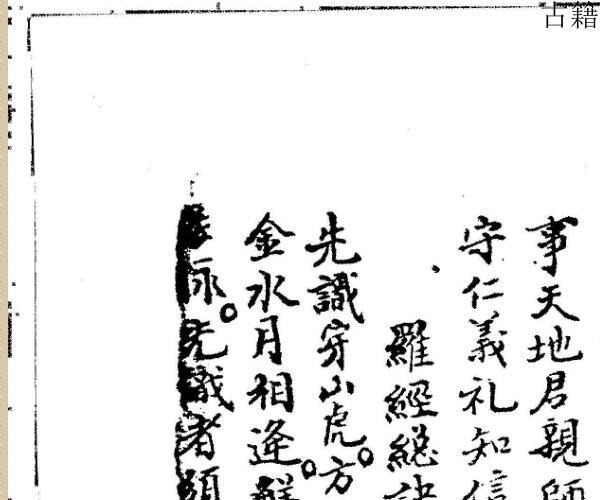 古籍
事天地君親師
守仁義礼知信
羅經總
先識穿山虎。方
金水月相逢
脉。先識者